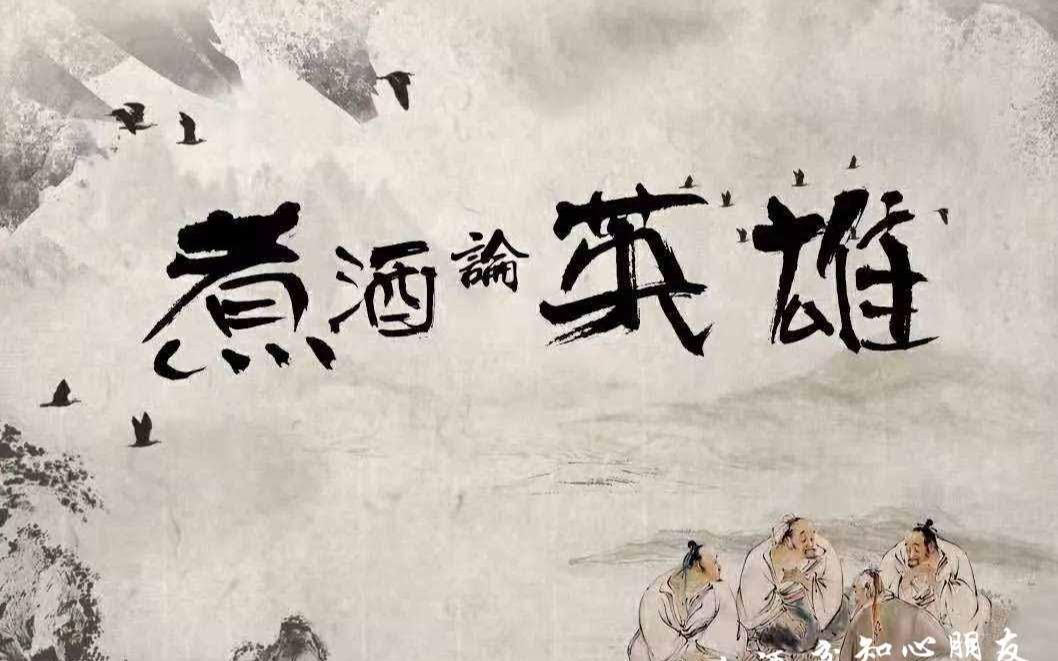 煮酒論英雄
知心朋友